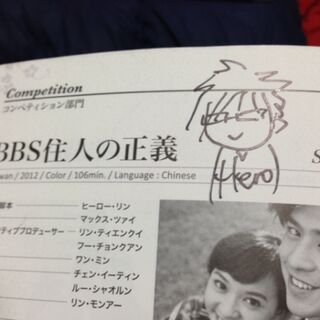 Competition
コンペティション部門
BBS住人の正義
wan / 2012 / Color / 106min. / Language : Chinese
Hero
脚本
ヒーロー・リン
マックス・ツァイ
ティブプロデューサー
リン・ティエンクイ
フー・チョンクアン
ワン・ミン
チェン・イーティン
ルー・シャオルン
リン・モンアー